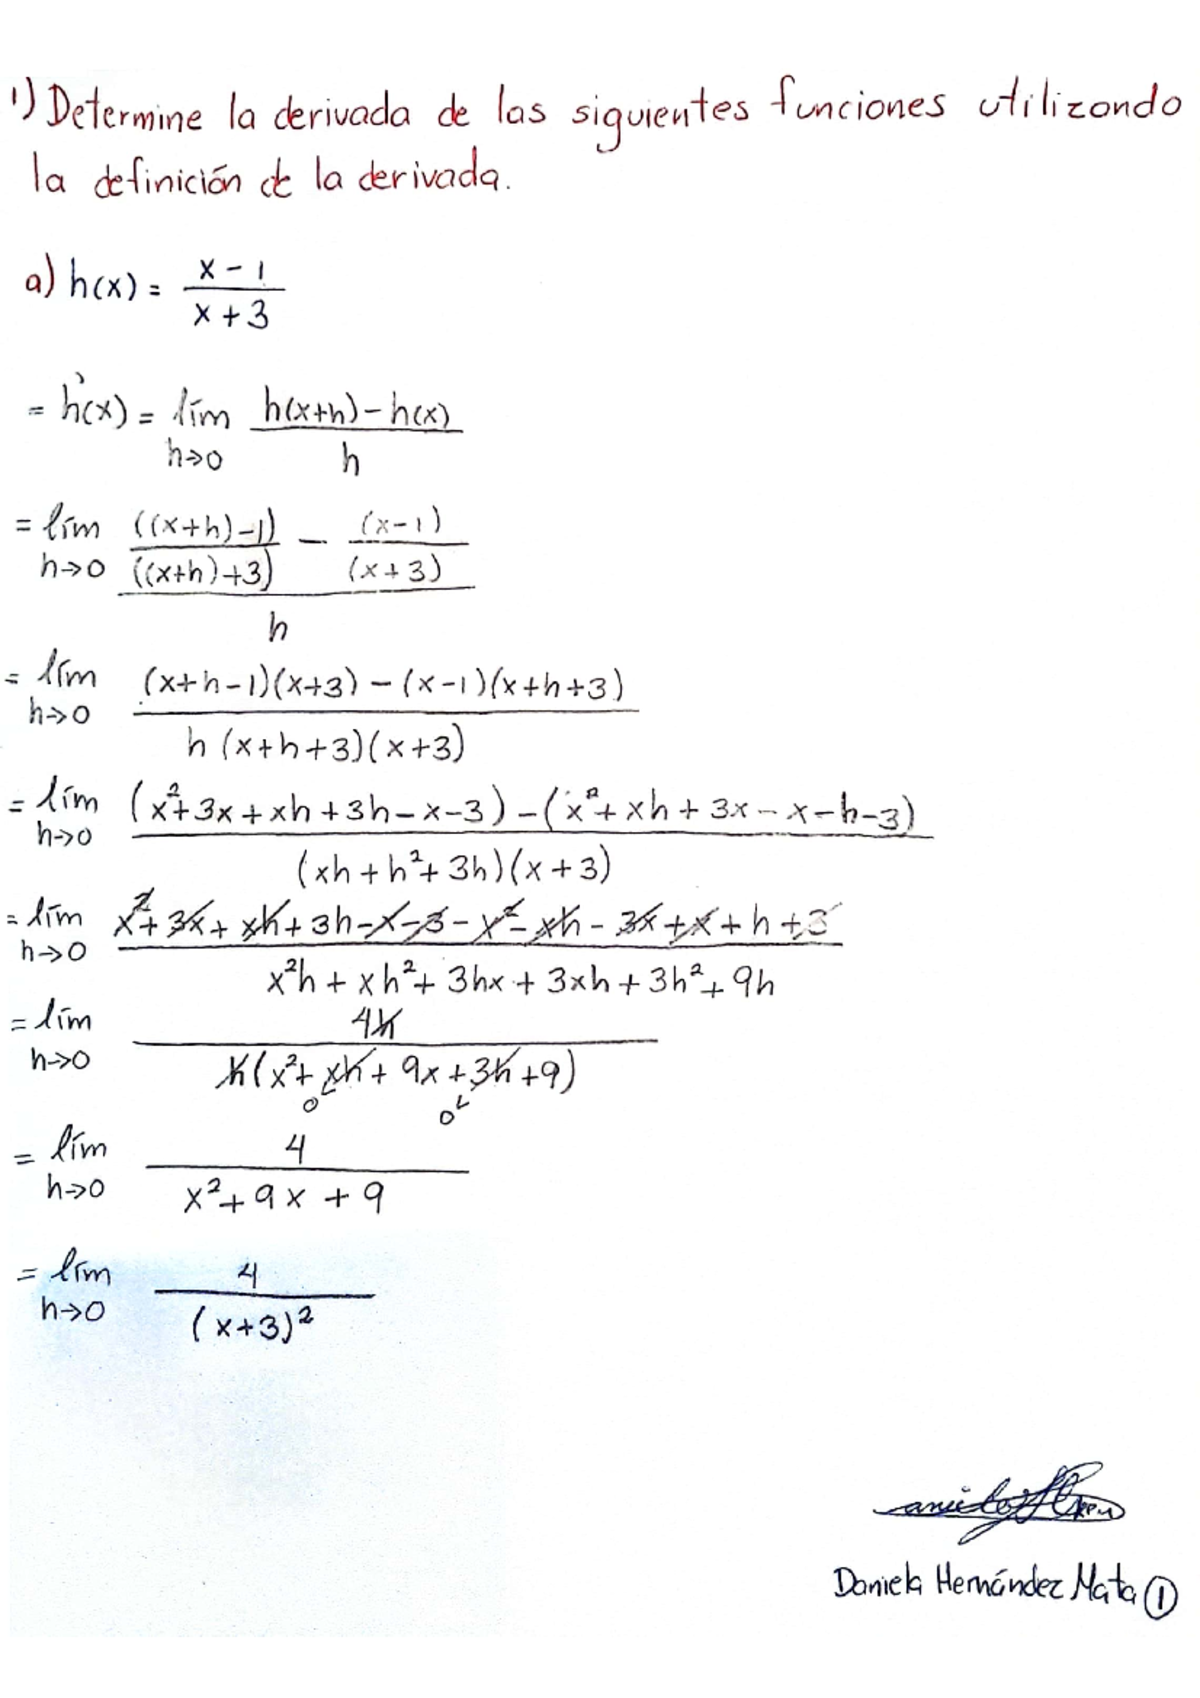 1) Determine la derivada de las siguientes funciones utilizando
la definición de la derivada.
a) h(x) = x - 1 / x + 3
= h'(x) = lím h→0 h(x+h) - h(x) / h
= lím h→0 ((x+h)-1) / ((x+h)+3) - (x-1) / (x+3) / h
= lím h→0 (x+h-1)(x+3) - (x-1)(x+h+3) / h (x+h+3)(x+3)
= lím h→0 (x²+3x+xh+3h-x-3) - (x²+xh+3x-x-h-3) / (xh+h²+3h)(x+3)
= lím h→0 x²+3x+xh+3h-x-3-x²-xh-3x+x+h+3 / x²h+xh²+3hx+3xh+3h²+9h
= lím h→0 4h / h(x²+xh+9x+3h+9)
0 0
= lím h→0 4 / x²+9x+9
= lím h→0 4 / (x+3)²
Daniela Hernández Mata 1